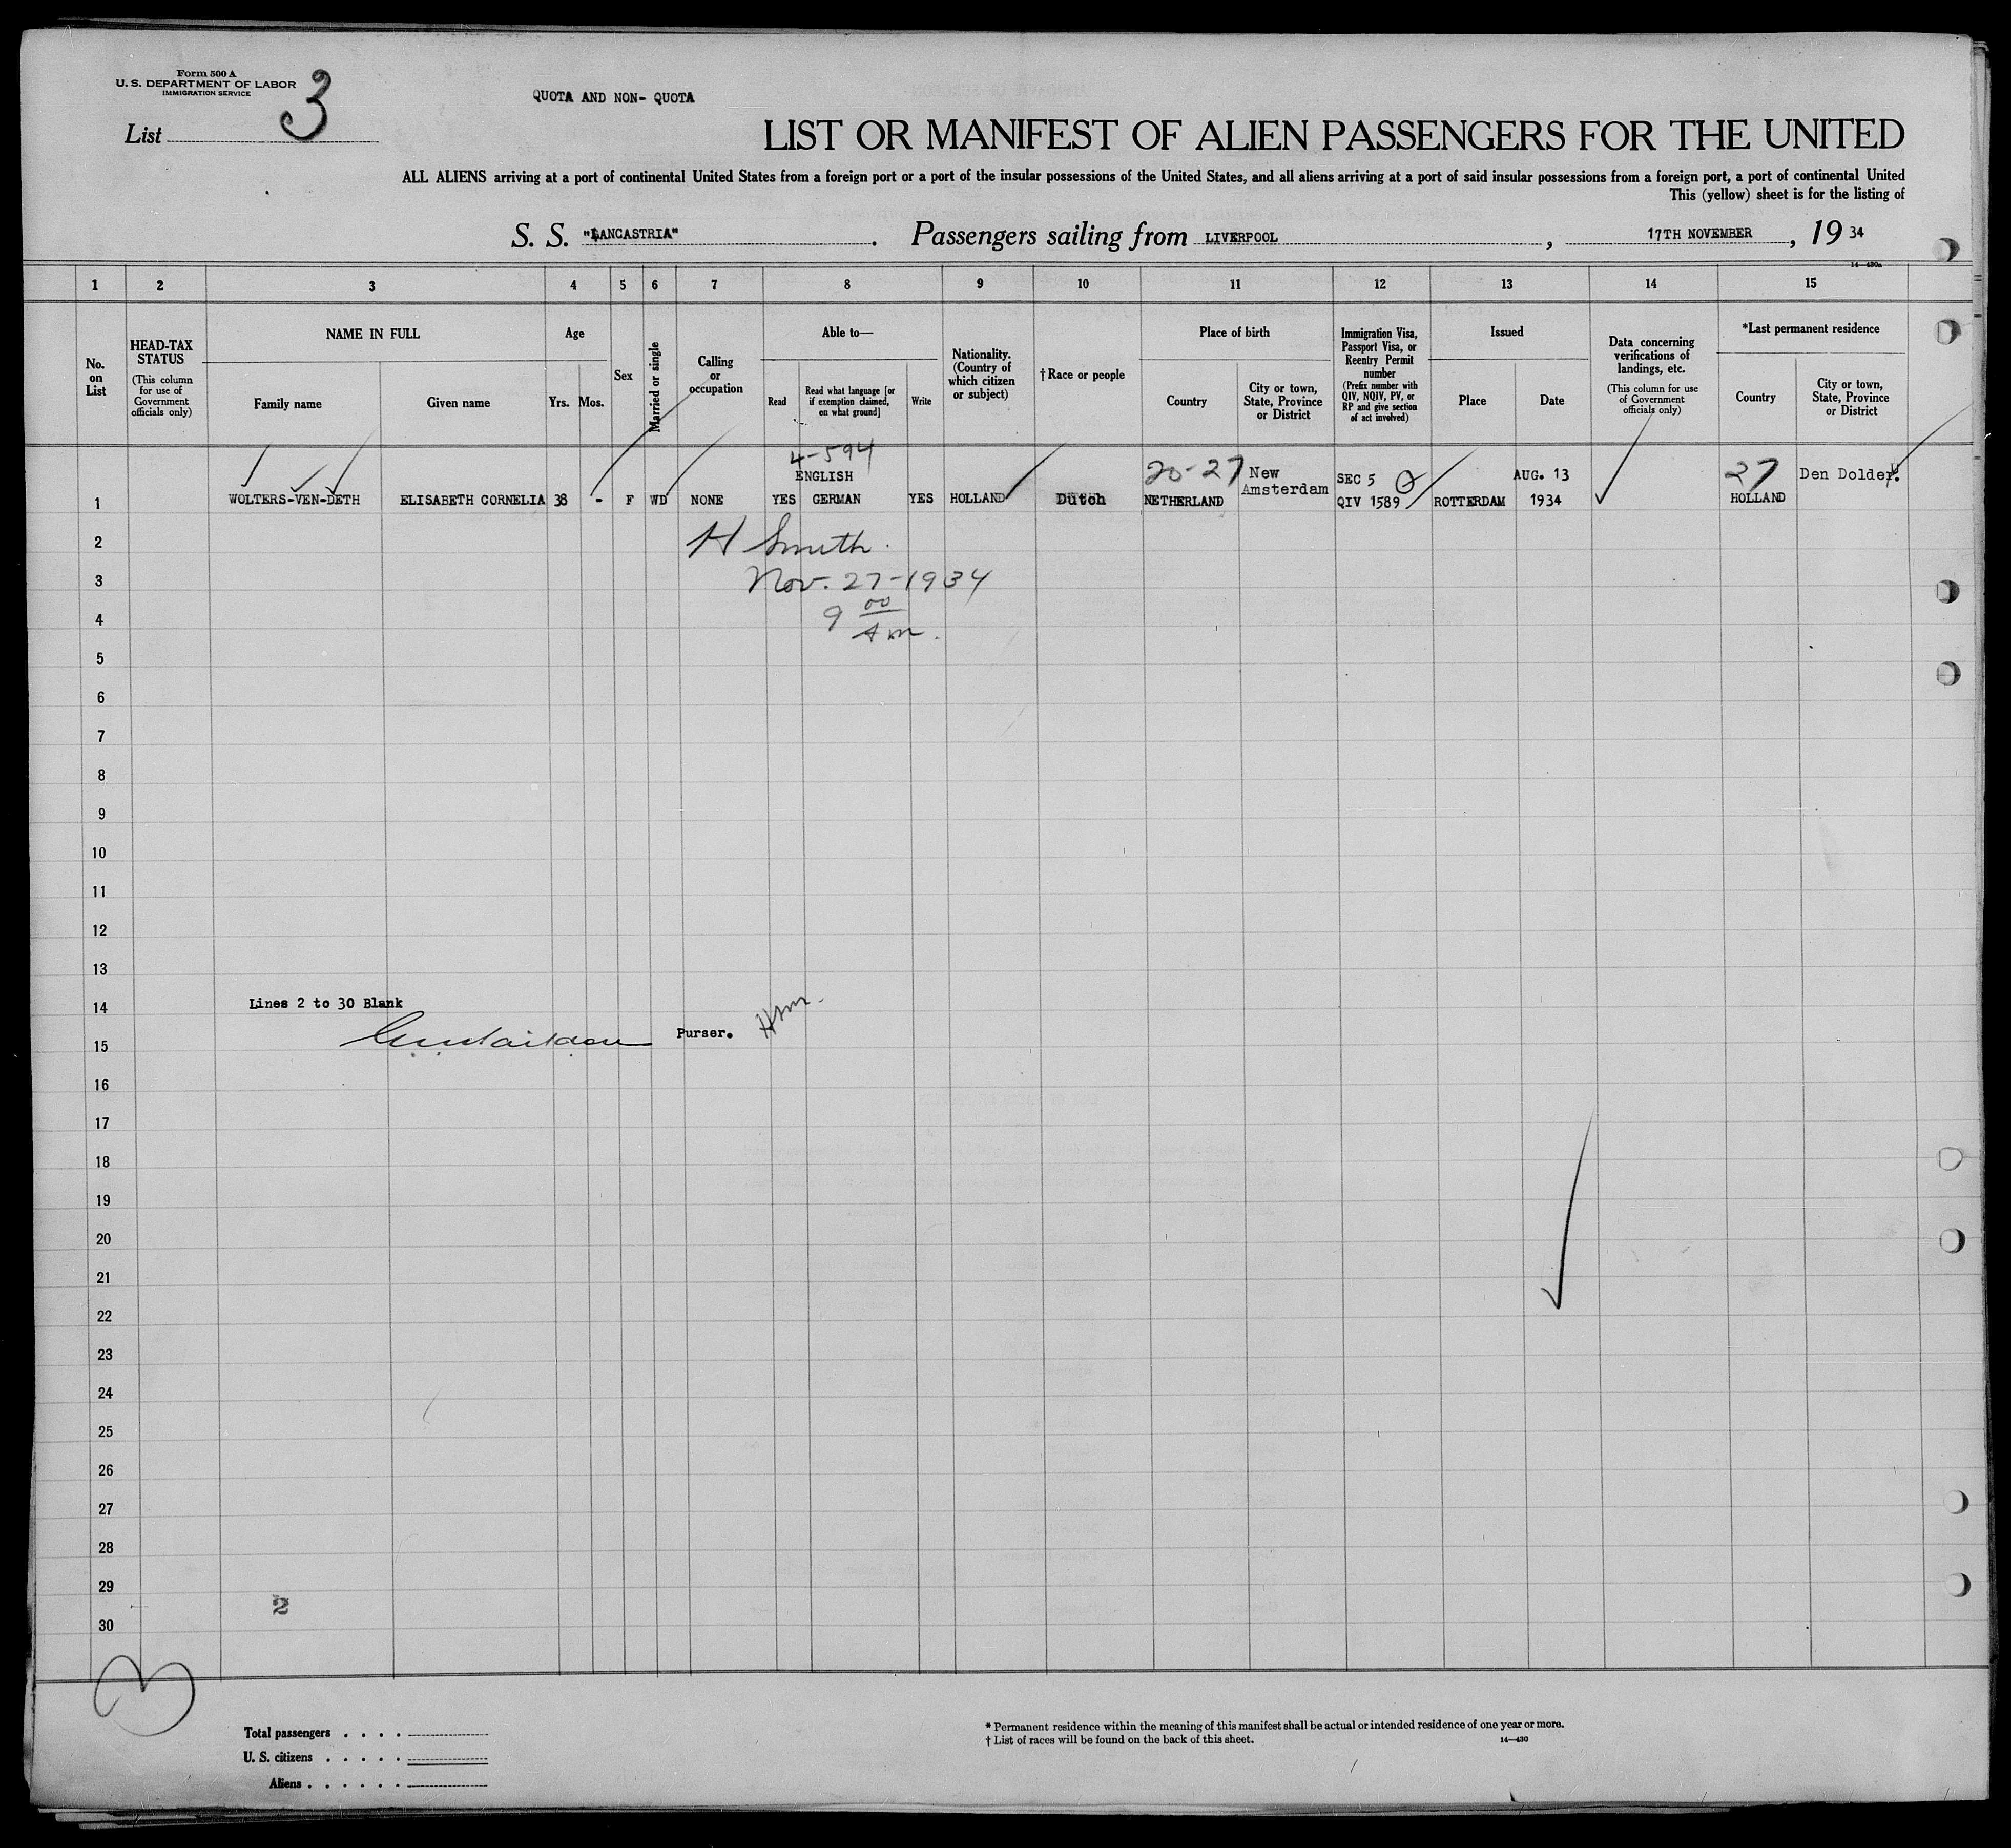 Form 500 A
U. S. DEPARTMENT OF LABOR
IMMIGRATION SERVICE
List 3
QUOTA AND NON- QUOTA
LIST OR MANIFEST OF ALIEN PASSENGERS FOR THE UNITED
ALL ALIENS arriving at a port of continental United States from a foreign port or a port of the insular possessions of the United States, and all aliens arriving at a port of said insular possessions from a foreign port, a port of continental United
This (yellow) sheet is for the listing of
S. S. "LANCASTRIA" . Passengers sailing from LIVERPOOL , 17TH NOVEMBER , 19 34
14—430a
1 2 3 4 5 6 7 8 9 10 11 12 13 14 15
No. on List
HEAD-TAX STATUS
(This column for use of Government officials only)
NAME IN FULL
Family name
Given name
Age
Yrs. Mos.
Sex
Married or single
Calling or occupation
Able to—
Read
Read what language [or if exemption claimed, on what ground]
Write
Nationality. (Country of which citizen or subject)
†Race or people
Place of birth
Country
City or town, State, Province or District
Immigration Visa, Passport Visa, or Reentry Permit number
(Prefix number with QIV, NQIV, PV, or RP and give section of act involved)
Issued
Place
Date
Data concerning verifications of landings, etc.
(This column for use of Government officials only)
*Last permanent residence
Country
City or town, State, Province or District
4-594
ENGLISH
20-27
New Amsterdam
SEC 5
AUG. 13
27
Den Dolder.
1 WOLTERS-VEN-DETH ELISABETH CORNELIA 38 - F WD NONE YES GERMAN YES HOLLAND Dutch NETHERLAND QIV 1589 ROTTERDAM 1934 HOLLAND
2 H Smith.
3 Nov. 27-1934
4 9 00 Am.
5
6
7
8
9
10
11
12
13
14 Lines 2 to 30 Blank
15 Purser.
16
17
18
19
20
21
22
23
24
25
26
27
28
29 2
30
3
Total passengers . . . .
U. S. citizens . . . . .
Aliens . . . . . .
* Permanent residence within the meaning of this manifest shall be actual or intended residence of one year or more.
† List of races will be found on the back of this sheet.
14—430